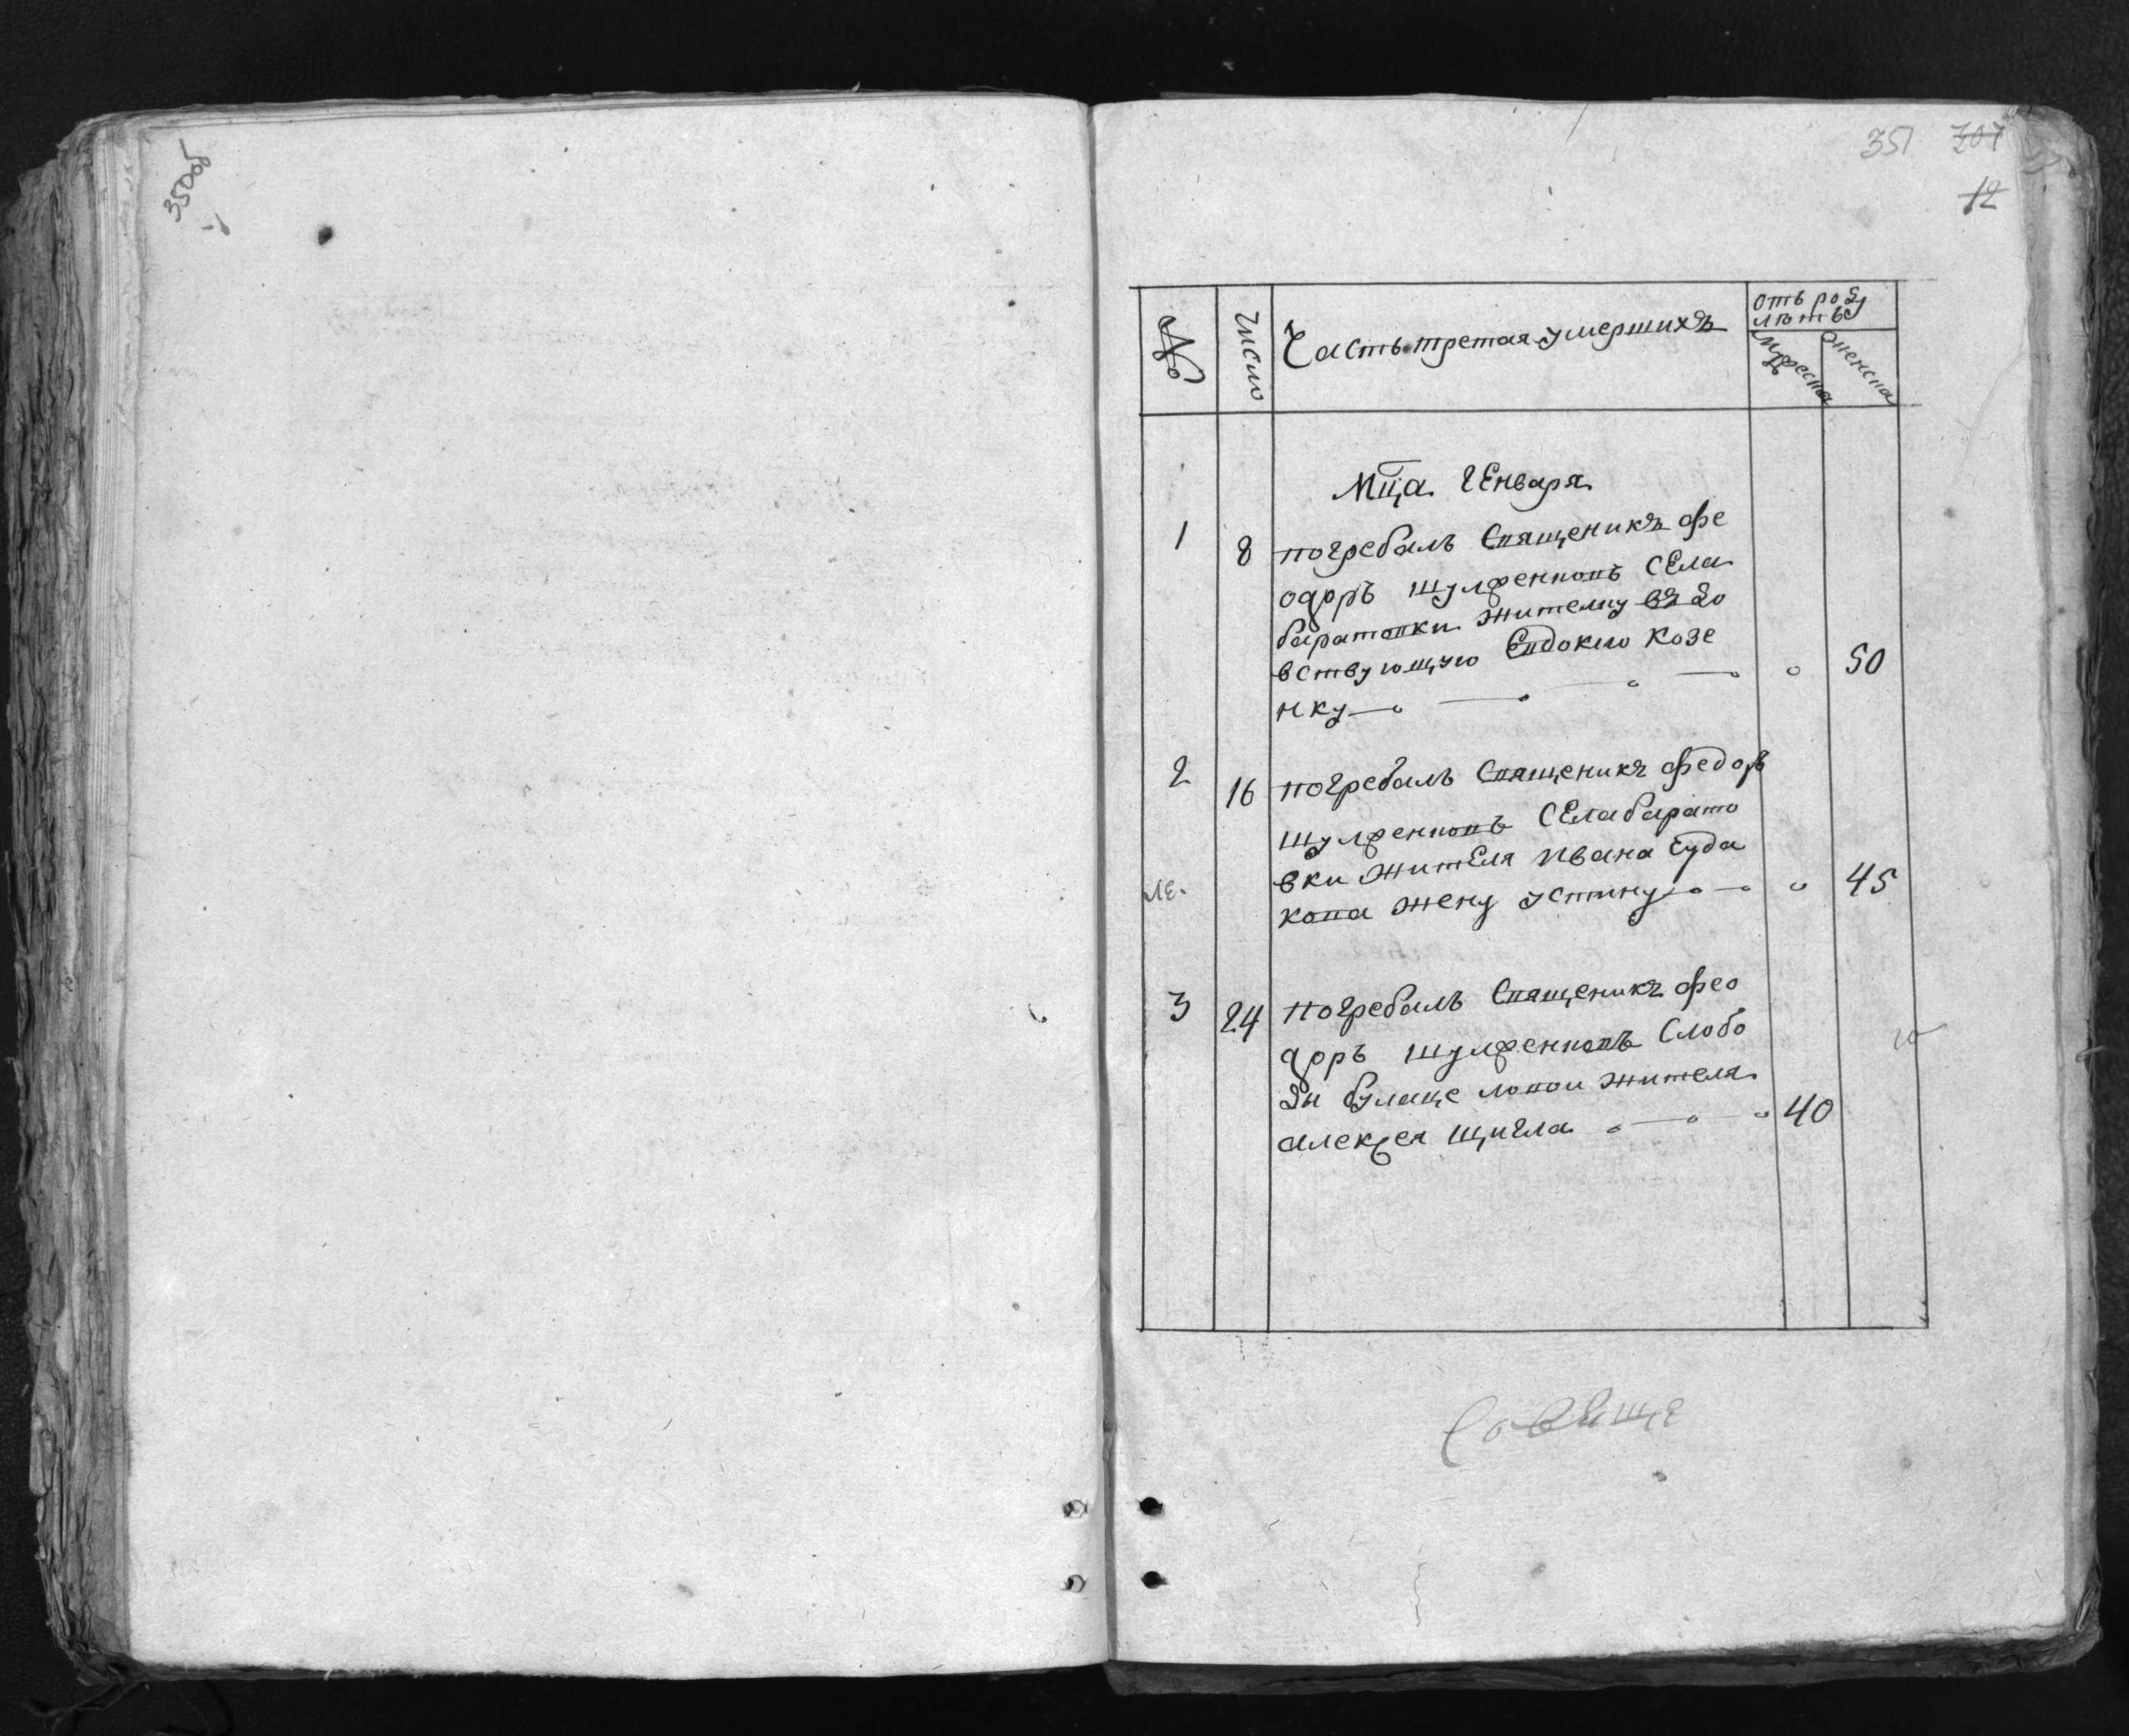 350об
351 707
12
№
число
Часть третая умершихъ
отъ род
лѣтъ
мужеска
женска
Мца Генваря
1 8 погребалъ Священикъ Фе
одоръ Шулженковъ села
баратовки жителку вдо
вствующую Евдокию Козе
нку 50
2 16 погребалъ Священикъ Федоръ
Шулженковъ села барато
вки жителя Ивана Еуда
кова жену Устину 45
3 24 погребалъ Священикъ Фео
доръ Шулженковъ Слобо
ды булаце ловои жителя
алексея щигла 40